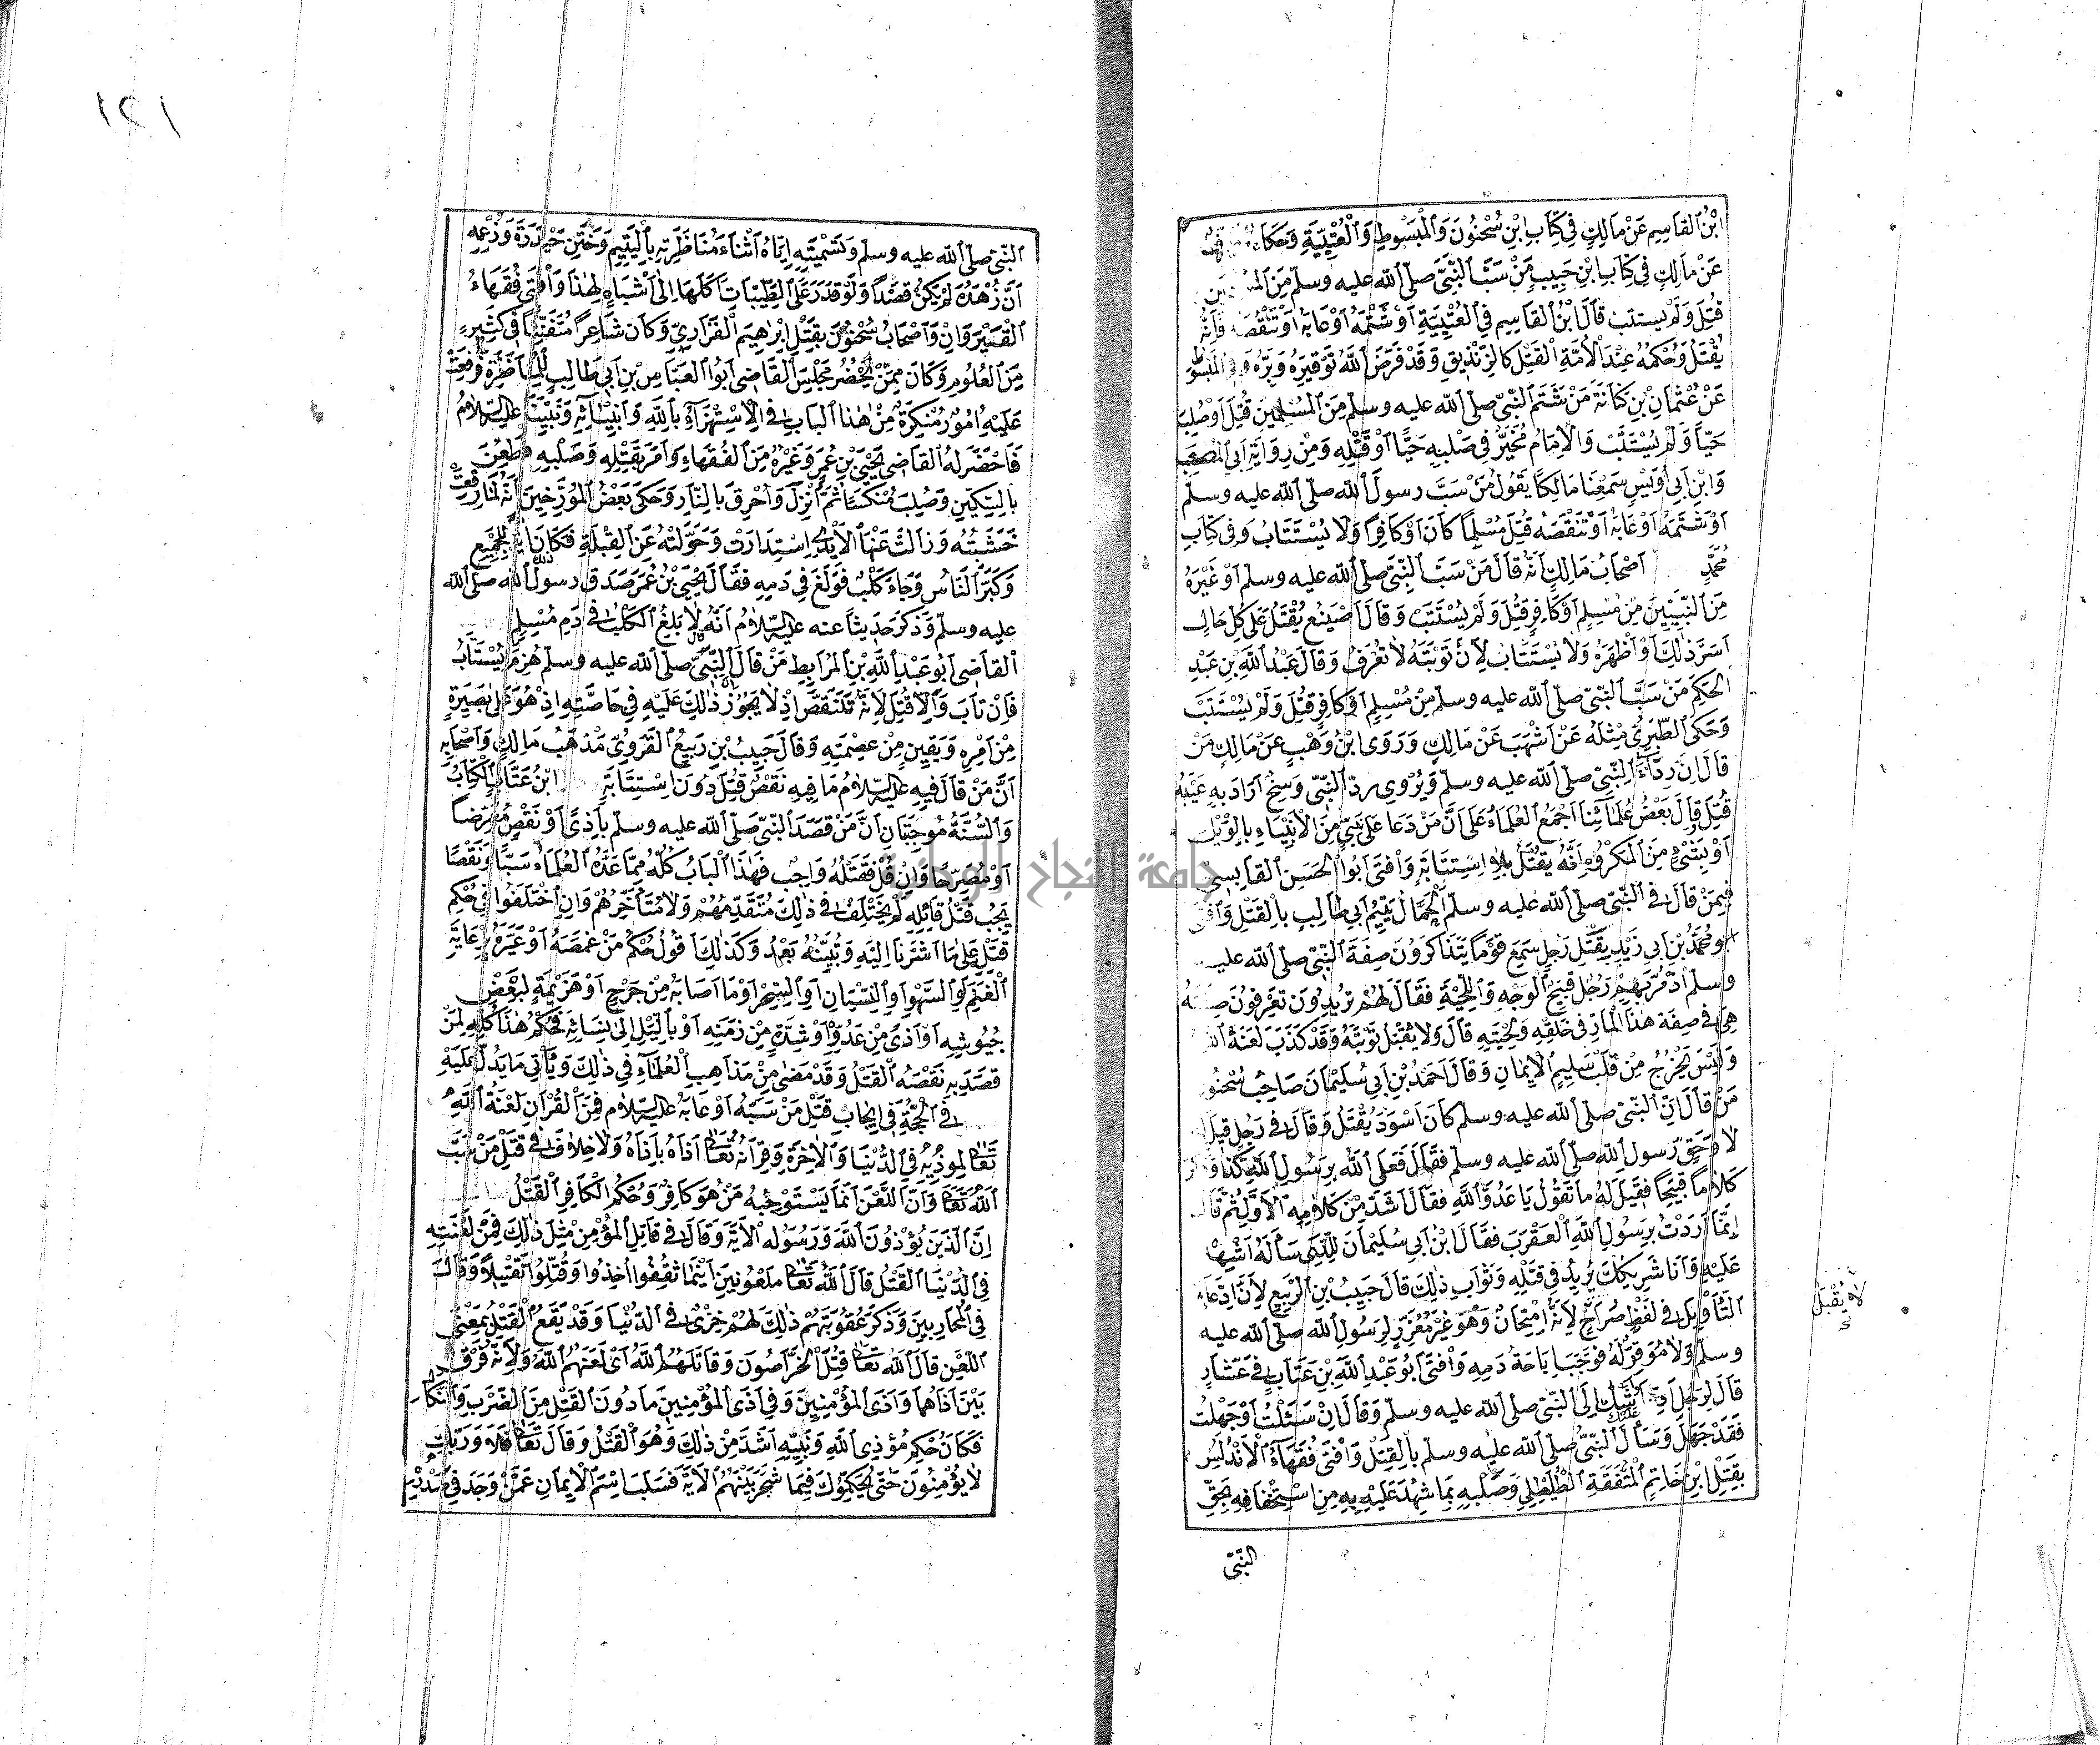 ابْنُ القَاسِمِ عَنْ مَالِكٍ فِي كِتَابِ ابْنِ سُحْنُونَ وَالْمَبْسُوطِ وَالْعُتْبِيَّةِ وَحَكَاهُ
عَنْ مَالِكٍ فِي كِتَابِ ابْنِ حَبِيبٍ مَنْ سَبَّ النَّبِيَّ صلّى الله عليه وسلم مِنَ
قُتِلَ وَلَمْ يستتب قَالَ ابْنُ القَاسِمِ فِي العُتْبِيَّةِ اَوْ شَتَمَهُ اَوْ عَابَهُ اَوْ تَنَقَّصَهُ فَاِنَّهُ
يُقْتَلُ وَحُكْمُهُ عِنْدَ الْاُمَّةِ القَتْلُ كَالزِّنْدِيقِ وَقَدْ فَرَضَ اللّٰهُ تَوْقِيرَهُ وَبِرَّهُ وَفِي المَبْسُوطِ
عَنْ عُثْمَانَ بْنِ كِنَانَةَ مَنْ شَتَمَ النَّبِيَّ صلّى الله عليه وسلم مِنَ المُسْلِمِينَ قُتِلَ اَوْ صُلِبَ
حَيًّا وَلَمْ يُسْتَتَبْ وَالْاِمَامُ مُخَيَّرٌ فِي صَلْبِهِ حَيًّا اَوْ قَتْلِهِ وَمِنْ رِوَايَةِ اَبِي المُصْعَبِ
وَابْنِ اَبِي اُوَيْسٍ سَمِعْنَا مَالِكًا يَقُولُ مَنْ سَبَّ رسولَ الله صلّى الله عليه وسلم
اَوْ شَتَمَهُ اَوْ عَابَهُ اَوْ تَنَقَّصَهُ قُتِلَ مُسْلِمًا كَانَ اَوْ كَافِرًا وَلَا يُسْتَتَابُ وَفِي كِتَابِ
مُحَمَّدٍ اَصْحَابُ مَالِكٍ اَنَّهُ قَالَ مَنْ سَبَّ النَّبِيَّ صلّى الله عليه وسلم اَوْ غَيْرَهُ
مِنَ النَّبِيِّينَ مِنْ مُسْلِمٍ اَوْ كَافِرٍ قُتِلَ وَلَمْ يُسْتَتَبْ وَقَالَ اَصْبَغُ يُقْتَلُ عَلَى كُلِّ حَالٍ
اَسَرَّ ذٰلِكَ اَوْ اَظْهَرَهُ وَلَا يُسْتَتَابُ لِاَنَّ تَوْبَتَهُ لَا تُعْرَفُ وَقَالَ عَبْدُ اللّٰهِ بْنِ عَبْدِ
الحَكَمِ مَنْ سَبَّ النَّبِيَّ صلّى الله عليه وسلم مِنْ مُسْلِمٍ اَوْ كَافِرٍ قُتِلَ وَلَمْ يُسْتَتَبْ
وَحَكَى الطَّبَرِيُّ مِثْلَهُ عَنْ اَشْهَبَ عَنْ مَالِكٍ وَرَوَى ابْنُ وَهْبٍ عَنْ مَالِكٍ مَنْ
قَالَ اِنَّ رِدَاءَ النَّبِيِّ صلّى الله عليه وسلم وَيُرْوَى زِرَّ النَّبِيِّ وَسِخٌ اَرَادَ بِهِ عَيْبَهُ
قُتِلَ قَالَ بَعْضُ عُلَمَائِنَا اَجْمَعَ العُلَمَاءُ عَلَى اَنَّ مَنْ دَعَا عَلَى نَبِيٍّ مِنَ الْاَنْبِيَاءِ بِالْوَيْلِ
اَوْ بِشَيْءٍ مِنَ المَكْرُوهِ اَنَّهُ يُقْتَلُ بِلَا اسْتِتَابَةٍ وَاَفْتَى اَبُو الحَسَنِ القَابِسِي
فِيمَنْ قَالَ فِي النَّبِيِّ صلّى الله عليه وسلم الجَمَّالُ يَتِيمُ اَبِي طَالِبٍ بِالْقَتْلِ وَاَفْتَى
اَبُو مُحَمَّدُ بْنِ اَبِي زَيْدٍ بِقَتْلِ رَجُلٍ سَمِعَ قَوْمًا يَتَذَاكَرُونَ صِفَةَ النَّبِيِّ صلّى الله عليه
وسلم اِذْ مَرَّ بِهِمْ رَجُلٌ قَبِيحُ الوَجْهِ وَاللِّحْيَةِ فَقَالَ لَهُمْ تُرِيدُونَ تَعْرِفُونَ صِفَتَهُ
هِيَ فِي صِفَةِ هٰذَا المَارِّ فِي خَلْقِهِ وَلِحْيَتِهِ قَالَ وَلَا يُقْبَلُ تَوْبَتُهُ وَقَدْ كَذَبَ لَعَنَهُ اللّٰهُ
وَلَيْسَ يَخْرُجُ مِنْ قَلْبٍ سَلِيمِ الْاِيمَانِ وَقَالَ اَحْمَدُ بْنِ اَبِي سُلَيْمَانَ صَاحِبُ سُحْنُون
مَنْ قَالَ اِنَّ النَّبِيَّ صلّى الله عليه وسلم كَانَ اَسْوَدَ يُقْتَلُ وَقَالَ فِي رَجُلٍ قِيلَ
لَا وَحَقِّ رسول الله صلّى الله عليه وسلم فَقَالَ فَعَلَ اللّٰهُ بِرَسُولِ اللّٰهِ كَذَا وَذَكَرَ
كَلَامًا قَبِيحًا فَقِيلَ لَهُ مَا تَقُولُ يَا عَدُوَّ اللّٰهِ فَقَالَ اَشَدَّ مِنْ كَلَامِهِ الْاَوَّلِ ثُمَّ قَالَ
اِنَّمَا اَرَدْتُ بِرَسُولِ اللّٰهِ العَقْرَبَ فَقَالَ ابْنُ اَبِي سُلَيْمَانَ لِلَّذِي سَاَلَهُ اشْهَدْ
عَلَيْهِ وَاَنَا شَرِيكُكَ يُرِيدُ فِي قَتْلِهِ وَثَوَابِ ذٰلِكَ قَالَ حَبِيبُ بْنِ الرَّبِيعِ لِاَنَّ ادِّعَاءَ
التَّأْوِيلِ فِي لَفْظٍ صُرَاحٍ لِاَنَّهُ امْتِحَانٌ وَهُوَ غَيْرُ مُعَزِّرٍ لِرَسُولِ الله صلّى الله عليه
وسلم وَلَا مُوَقِّرٍ لَهُ فَوَجَبَ اِبَاحَةُ دَمِهِ وَاَفْتَى اَبُو عَبْدِ اللّٰهِ بْنِ عَتَابٍ فِي عَشَّارٍ
قَالَ لِرَجُلٍ اَدِّ اشْكُ اِلَى النَّبِيِّ صلّى الله عليه وسلم وَقَالَ اِنْ سَئَلْتُ اَوْ جَهِلْتُ
فَقَدْ جَهِلَ وَسَأَلَ النَّبِيُّ صلّى الله عليه وسلم بِالْقَتْلِ وَاَفْتَى فُقَهَاءُ الْاَنْدَلُسِ
بِقَتْلِ ابْنِ حَاتِمٍ المُتَفَقِّهِ الطُّلَيْطِلِي وَصَلْبِهِ بِمَا شُهِدَ عَلَيْهِ بِهِ مِنِ اسْتِخْفَافِهِ بِحَقِّ
النَّبِيِّ
لا يُقْبَلُ
١٢١
النَّبِيِّ صلّى الله عليه وسلم وَتَسْمِيَتِهِ اِيَّاهُ اَثْنَاءَ مُنَاظَرَتِهِ بِالْيَتِيمِ وَخَتَنِ حَيْدَرَةَ وَزَعْمِهِ
اَنَّ زُهْدَهُ لَمْ يَكُنْ قَصْدًا وَلَوْ قَدَرَ عَلَى الطَّيِّبَاتِ اَكَلَهَا اِلَى اَشْبَاهٍ لِهٰذَا وَاَفْتَى فُقَهَاءُ
القَيْرَوَانِ وَاَصْحَابُ سُحْنُونَ بِقَتْلِ اِبْرٰهِيمَ الفَزَارِيِّ وَكَانَ شَاعِرًا مُتَفَنِّنًا فِي كَثِيرٍ
مِنَ العُلُومِ وَكَانَ مِمَّنْ يَحْضُرُ مَجْلِسَ القَاضِي اَبُو العَبَّاسِ بْنِ اَبِي طَالِبٍ لِلْمُنَاظَرَةِ فَرُفِعَتْ
عَلَيْهِ اُمُورٌ مُنْكَرَةٌ مِنْ هٰذَا البَابِ فِي الْاِسْتِهْزَاءِ بِاللّٰهِ وَاَنْبِيَائِهِ وَنَبِيِّنَا عليه السلامُ
فَاَحْضَرَ لَهُ القَاضِي يَحْيَى بْنِ عُمَرَ وَغَيْرُهُ مِنَ الفُقَهَاءِ وَاَمَرَ بِقَتْلِهِ وَصَلْبِهِ فَطُعِنَ
بِالسِّكِّينِ وَصُلِبَ مُنَكَّسًا ثُمَّ اُنْزِلَ وَاُحْرِقَ بِالنَّارِ وَحَكَى بَعْضُ المُؤَرِّخِينَ اَنَّهُ لَمَّا رُفِعَتْ
خَشَبَتُهُ وَزَالَتْ عَنْهَا الْاَيْدِي اِسْتِدَارَتْ وَحَوَّلَتْهُ عَنِ القِبْلَةِ فَكَانَ آيَةً لِلْجَمِيعِ
وَكَبَّرَ النَّاسُ وَجَاءَ كَلْبٌ فَوَلَغَ فِي دَمِهِ فَقَالَ يَحْيَى بْنُ عُمَرَ صَدَقَ رسول الله صلّى الله
عليه وسلم وَذَكَرَ حَدِيثًا عنه عليه السلامُ اَنَّهُ لَا يَلَغُ الكَلْبُ فِي دَمِ مُسْلِمٍ
القَاضِي اَبُو عَبْدِ اللّٰهِ بْنِ المُرَابِطِ مَنْ قَالَ النَّبِيَّ صلّى الله عليه وسلم هُزِمَ يُسْتَتَابُ
فَاِنْ تَابَ وَاِلَّا قُتِلَ لِاَنَّهُ تَنَقُّصٌ اِذْ لَا يَجُوزُ ذٰلِكَ عَلَيْهِ فِي خَاصَّتِهِ اِذْ هُوَ عَلَى بَصِيرَةٍ
مِنْ اَمْرِهِ وَيَقِينٍ مِنْ عِصْمَتِهِ وَقَالَ حَبِيبُ بْنِ رَبِيعٍ القَرَوِيِّ مَذْهَبُ مَالِكٍ وَاَصْحَابِهِ
اَنَّ مَنْ قَالَ فِيهِ عليه السلامُ مَا فِيهِ نَقْصٌ قُتِلَ دُونَ اسْتِتَابَةٍ ابْنُ عَتَّابٍ الكِتَابُ
وَالسُّنَّةُ مُوجِبَانِ اَنَّ مَنْ قَصَدَ النَّبِيَّ صلّى الله عليه وسلم بِاَذًى اَوْ نَقْصٍ مُعَرِّضًا
اَوْ مُصَرِّحًا وَاِنْ قَلَّ فَقَتْلُهُ وَاجِبٌ فَهٰذَا البَابُ كُلُّهُ مِمَّا عَدَّهُ العُلَمَاءُ سَبًّا وَنَقْصًا
يَجِبُ قَتْلُ قَائِلِهِ لَمْ يَخْتَلِفْ فِي ذٰلِكَ مُتَقَدِّمُهُمْ وَلَا مُتَأَخِّرُهُمْ وَاِنِ اخْتَلَفُوا فِي حُكْمِ
قَتْلِهِ عَلَى مَا اَشَرْنَا اِلَيْهِ وَنُبَيِّنُهُ بَعْدُ وَكَذٰلِكَ اَقُولُ حُكْمُ مَنْ غَمَصَهُ اَوْ عَيَّرَهُ بِرِعَايَةِ
الْغَنَمِ اَوِ السَّهْوِ اَوِ النِّسْيَانِ اَوِ السِّحْرِ اَوْ مَا اَصَابَهُ مِنْ جَرْحٍ اَوْ هَزِيمَةٍ لِبَعْضِ
جُيُوشِهِ اَوْ اَذًى مِنْ عَدُوِّهِ اَوْ شِدَّةٍ مِنْ زَمَنِهِ اَوْ بِالْمَيْلِ اِلَى نِسَائِهِ فَحُكْمُ هٰذَا كُلِّهِ لِمَنْ
قَصَدَ بِهِ نَقْصَهُ القَتْلُ وَقَدْ مَضَى مِنْ مَذَاهِبِ العُلَمَاءِ فِي ذٰلِكَ وَيَأْتِي مَا يَدُلُّ عَلَيْهِ
فِي الحُجَّةِ فِي اِيجَابِ قَتْلِ مَنْ سَبَّهُ اَوْ عَابَهُ عليه السلام فَمِنَ القُرْآنِ لَعْنَةُ اللّٰهِ
تَعَالَى لِمُوذِيهِ فِي الدُّنْيَا وَالْاٰخِرَةِ وَقِرَانُهُ تَعَالَى اَذَاهُ بِاَذَاهُ وَلَا خِلَافَ فِي قَتْلِ مَنْ سَبَّ
اللّٰهَ تَعَالَى وَاَنَّ اللَّعْنَ اِنَّمَا يَسْتَوْجِبُهُ مَنْ هُوَ كَافِرٌ وَحُكْمُ الكَافِرِ القَتْلُ
اِنَّ الَّذِينَ يُؤْذُونَ اللّٰهَ وَرَسُولَهُ الْاَيَةَ وَقَالَ فِي قَاتِلِ المُؤْمِنِ مِثْلَ ذٰلِكَ فَمِنْ لَعْنَتِهِ
فِي الدُّنْيَا القَتْلُ قَالَ اللّٰهُ تَعَالَى مَلْعُونِينَ اَيْنَمَا ثُقِفُوا اُخِذُوا وَقُتِّلُوا تَقْتِيلًا وَقَالَ
فِي المُحَارِبِينَ وَذَكَرَ عُقُوبَتَهُمْ ذٰلِكَ لَهُمْ خِزْيٌ فِي الدُّنْيَا وَقَدْ يَقَعُ القَتْلُ بِمَعْنَى
اللَّعْنِ قَالَ اللّٰهُ تَعَالَى قُتِلَ الخَرَّاصُونَ وَقَاتَلَهُمُ اللّٰهُ اَيْ لَعَنَهُمُ اللّٰهُ وَلِاَنَّهُ فَرَّقَ
بَيْنَ اَذَاهُمَا وَاَذَى المُؤْمِنِينَ وَفِي اَذَى المُؤْمِنِينَ مَا دُونَ القَتْلِ مِنَ الضَّرْبِ وَالنَّكَالِ
فَكَانَ حُكْمُ مُؤْذِي اللّٰهِ وَنَبِيِّهِ اَشَدَّ مِنْ ذٰلِكَ وَهُوَ القَتْلُ وَقَالَ تَعَالَى فَلَا وَرَبِّكَ
لَا يُؤْمِنُونَ حَتَّى يُحَكِّمُوكَ فِيمَا شَجَرَ بَيْنَهُمُ الْاَيَةَ فَسَلَبَ اسْمَ الْاِيمَانِ عَمَّنْ وَجَدَ فِي صَدْرِهِ
جامعة النجاح الوطنية